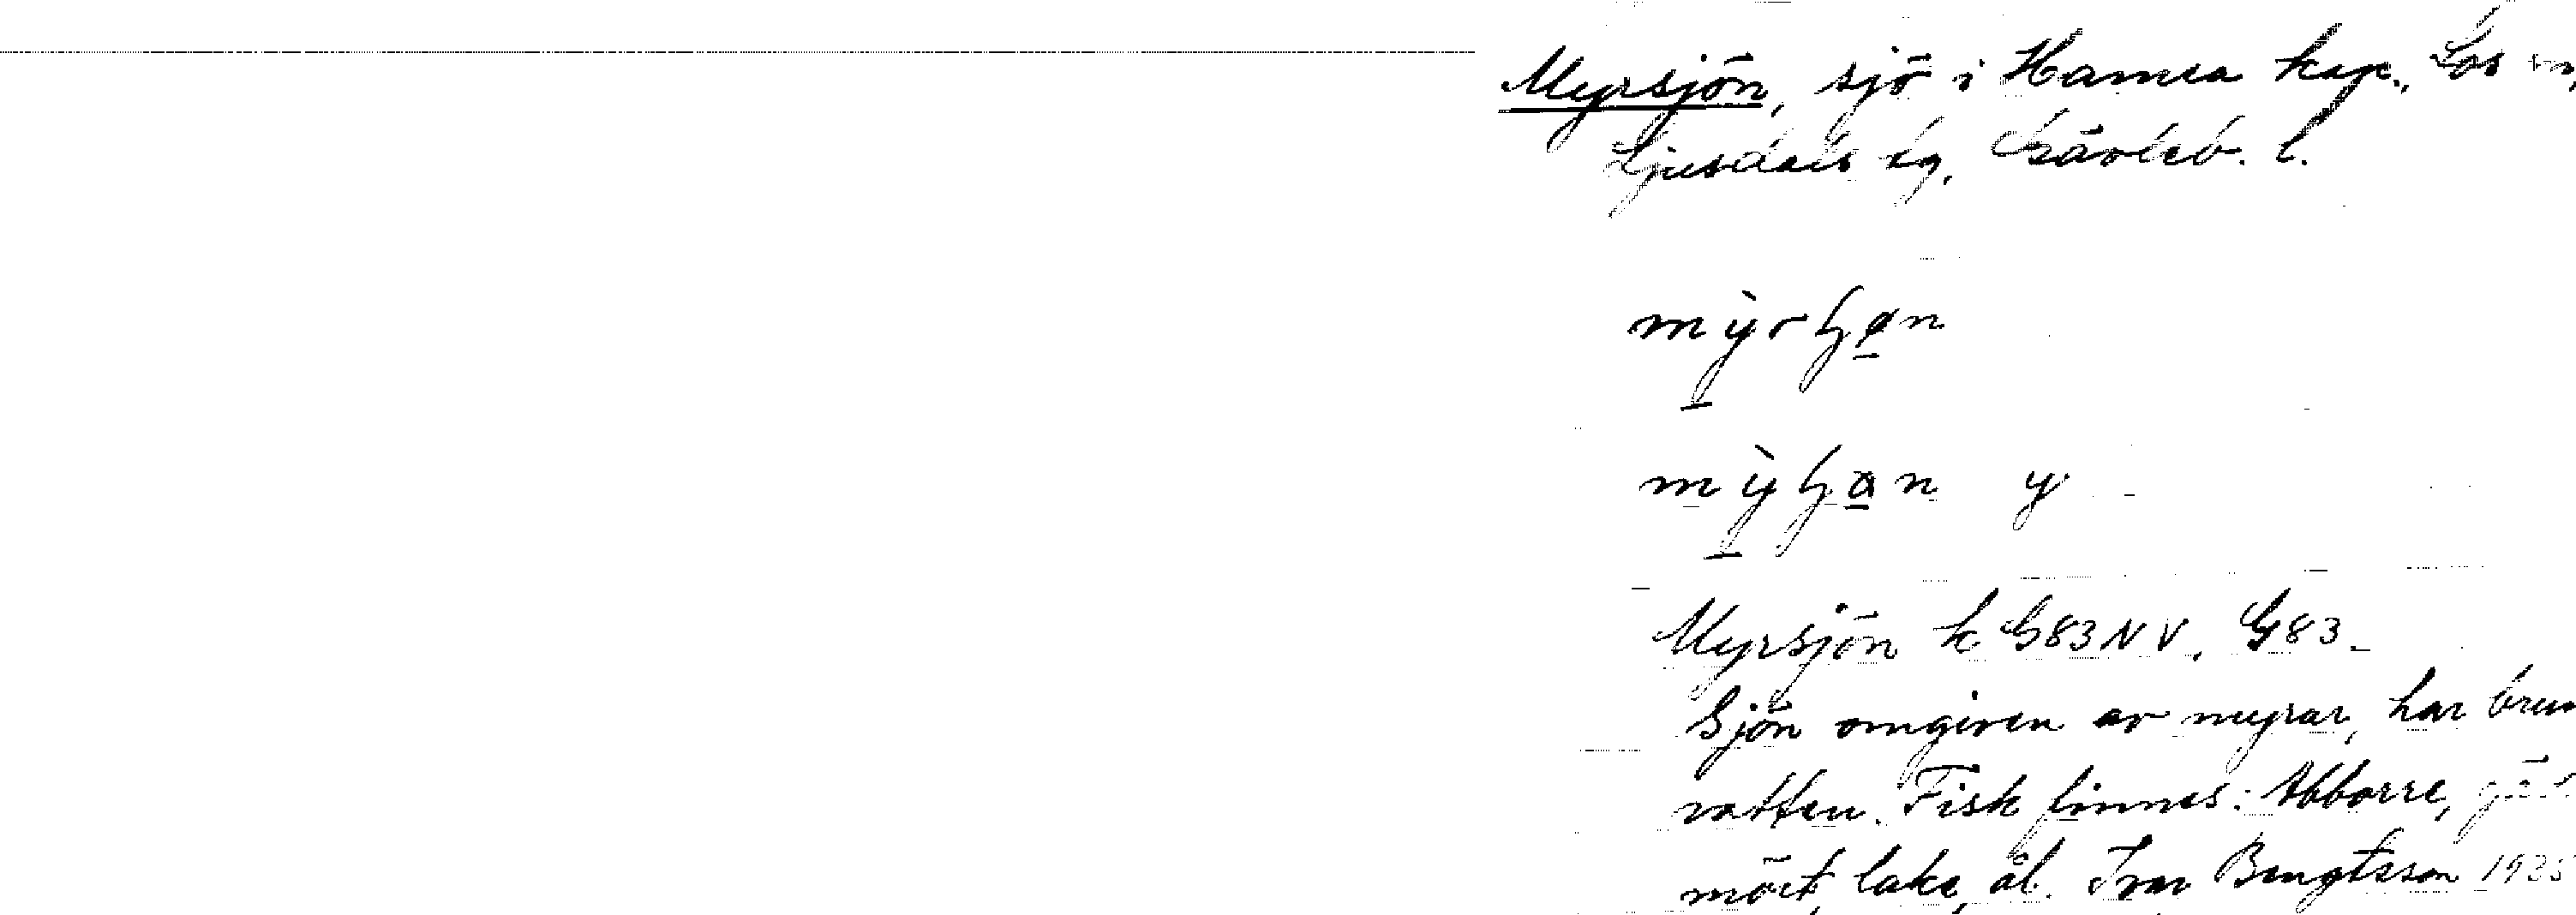 Myrsjön, sjö i Hamra kap., Los sn,
Ljusdals tg, Gävleb. l.
Myrsjön k G83NV, G83
Sjön omgiven av myrar, har brun
vatten. Fisk finnes: Abborre,
mört, lake, ål. Ivar Bengtsson 1935